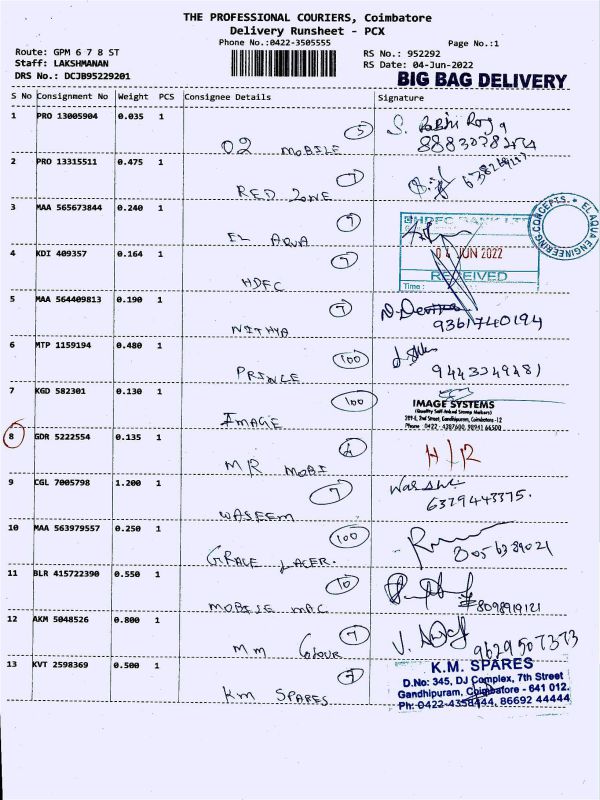 THE PROFESSIONAL COURIERS, Coimbatore
Delivery Runsheet - PCX
Phone No.:0422-3505555
Page No.:1
Route: GPM 6 7 8 ST
RS No.: 952292
Staff: LAKSHMANAN
RS Date: 04-Jun-2022
DRS No.: DCJB95229201
BIG BAG DELIVERY
S No Consignment No Weight PCS Consignee Details Signature
1 PRO 13005904 0.035 1 O2 MOBILE 5
2 PRO 13315511 0.475 1 RED ZONE 7
3 MAA 565673844 0.240 1 EL AQUA 9
EL AQUA ENGINEERING CONCEPTS.
4 KDI 409357 0.164 1 HDFC 7
HDFC BANK LTD
04 JUN 2022
RECEIVED
Time:
5 MAA 564409813 0.190 1 NITHYA 7
9361740194
6 MTP 1159194 0.480 1 PRINCE 100
9443249481
7 KGD 582301 0.130 1 IMAGE 100
IMAGE SYSTEMS
(Quality Self-Inked Stamp Makers)
2nd Street, Gandhipuram, Coimbatore -12
Phone 0422 - 4387600, 98941 66500
8 GDR 5222554 0.135 1 MR MOBI
9 CGL 7005798 1.200 1 WASEEM 7
6379443375.
10 MAA 563979557 0.250 1 GRACE LACER. 100
11 BLR 415722390 0.550 1 MOBILE MAC 10
8098919121
12 AKM 5048526 0.800 1 MM Colour 7
9629507373
13 KVT 2598369 0.500 1 KM SPARES 7
K.M. SPARES
D.No: 345, DJ Complex, 7th Street
Gandhipuram, Coimbatore - 641 012.
Ph: 0422-4358444, 86692 44444